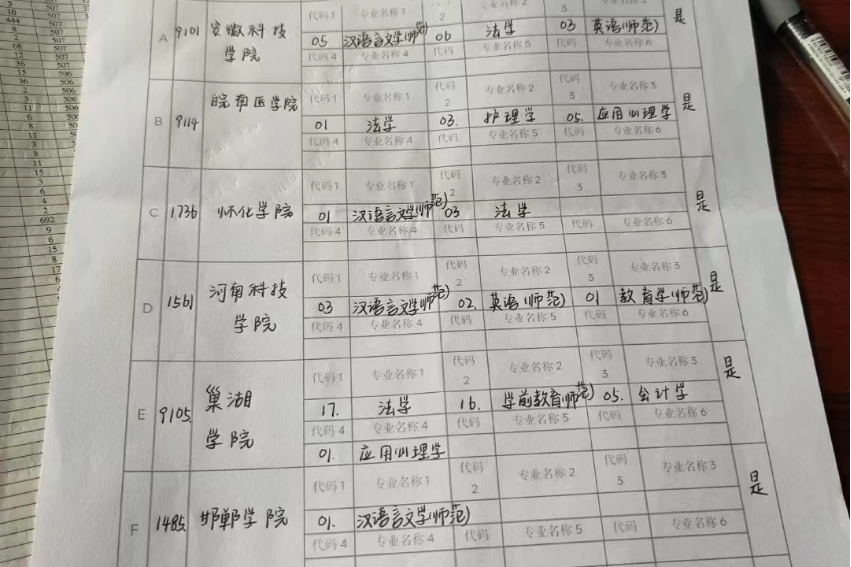 代码1 专业名称1 2 专业名称2 3 专业名称3
A 9101 安徽科技学院 05 汉语言文学(师范) 06 法学 03 英语(师范) 是
代码4 专业名称4 代码 专业名称5 代码 专业名称6
代码1 专业名称1 代码2 专业名称2 代码3 专业名称3
B 9114 皖南医学院 01 法学 03. 护理学 05. 应用心理学 是
代码4 专业名称4 代码 专业名称5 代码 专业名称6
代码1 专业名称1 代码2 专业名称2 代码3 专业名称3
C 1736 怀化学院 01 汉语言文学(师范) 03 法学 是
代码4 专业名称4 代码 专业名称5 代码 专业名称6
代码1 专业名称1 代码2 专业名称2 代码3 专业名称3
D 1561 河南科技学院 03 汉语言文学(师范) 02. 英语(师范) 01 教育学(师范) 是
代码4 专业名称4 代码 专业名称5 代码 专业名称6
代码1 专业名称1 代码2 专业名称2 代码3 专业名称3
E 9105 巢湖学院 17. 法学 16. 学前教育(师范) 05. 会计学 是
代码4 专业名称4 代码 专业名称5 代码 专业名称6
01. 应用心理学
代码1 专业名称1 代码2 专业名称2 代码3 专业名称3
F 1485 邯郸学院 01. 汉语言文学(师范) 是
代码4 专业名称4 代码 专业名称5 代码 专业名称6